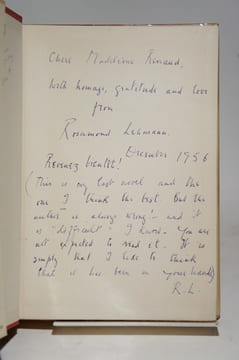 Chère Madeleine Renaud.
With homage, gratitude and love
from
Rosamond Lehmann.
December 1956
Revenez bientôt!
(This is my last novel and the
one I think the best. But the
author is always wrong - and it
is "difficult" I know. You are
not expected to read it. It is
simply that I like to think
that it has been in your hands)
R.L.